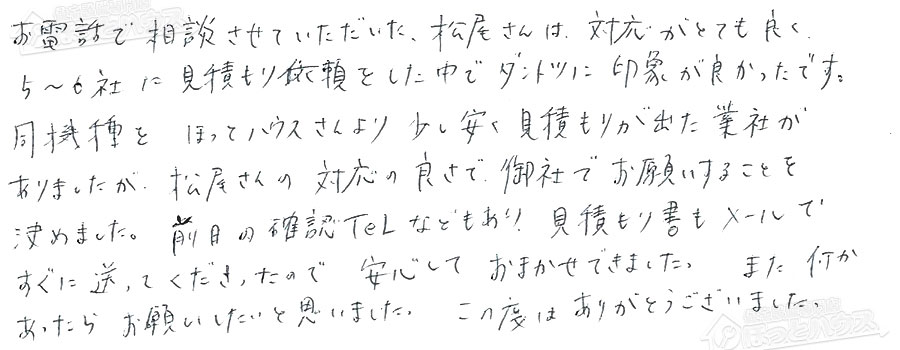 お電話で相談させていただいた、松尾さんは、対応がとても良く、
5〜6社に見積もり依頼をした中でダントツに印象が良かったです。
同機種を ほっとハウスさんより少し安く見積もりが出た業社が
ありましたが、松尾さんの対応の良さで、御社でお願いすることを
決めました。前日の確認TeLなどもあり、見積もり書もメールで
すぐに送ってくださったので 安心して おまかせできました。また 何か
あったら お願いしたいと思いました。この度はありがとうございました。
ほっとハウス